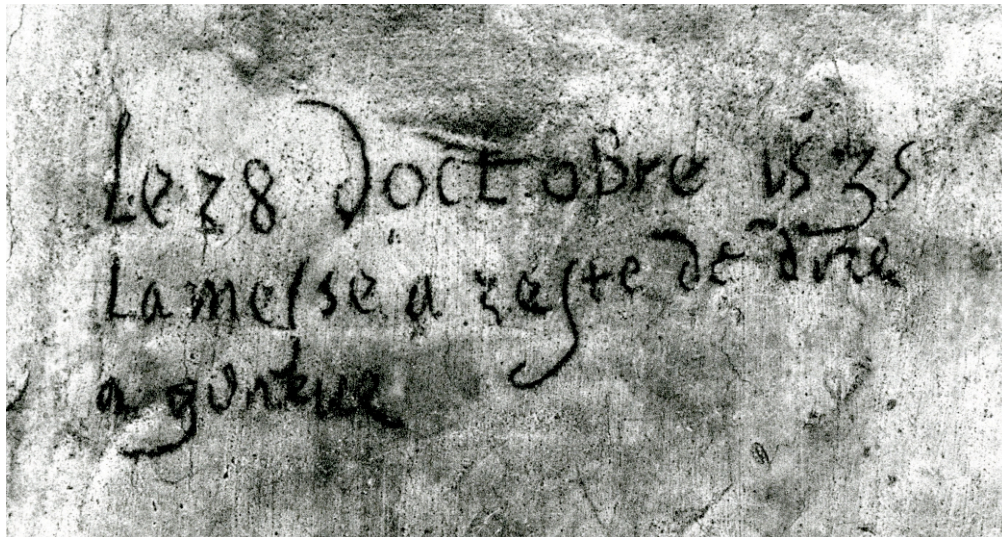 Le 28 doctobre 1535
La messe a reste de dire
a